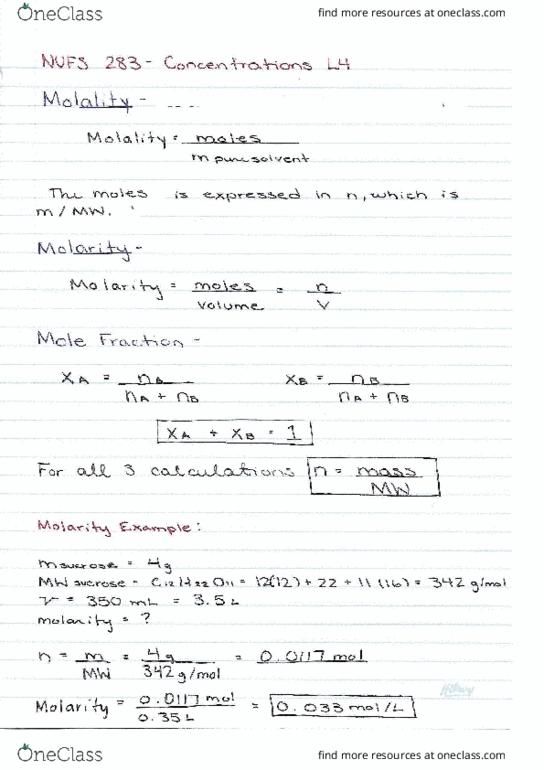 OneClass
find more resources at oneclass.com
NUFS 283 - Concentrations L4
Molality -
Molality = moles
m pure solvent
The moles is expressed in n, which is
m / MW.
Molarity -
Molarity = moles = n
volume V
Mole Fraction -
XA = nA XB = nB
nA + nB nA + nB
XA + XB = 1
For all 3 calculations n = mass
MW
Molarity Example:
m sucrose = 4g
MW sucrose = C12H22O11 = 12(12) + 22 + 11(16) = 342 g/mol
V = 350 mL = 3.5L
molarity = ?
n = m = 4g = 0.0117 mol
MW 342 g/mol
Molarity = 0.0117 mol = 0.033 mol/L
0.35L
OneClass
find more resources at oneclass.com